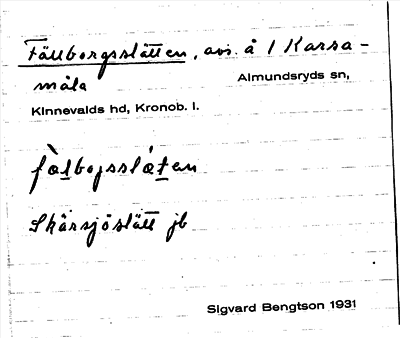 Fällborgsslätten, avs. å 1 Karsa-
måla Almundsryds sn,
Kinnevalds hd, Kronob. l.
fàlbojsslǽtan
Skärsjöslätt jb
Sigvard Bengtson 1931